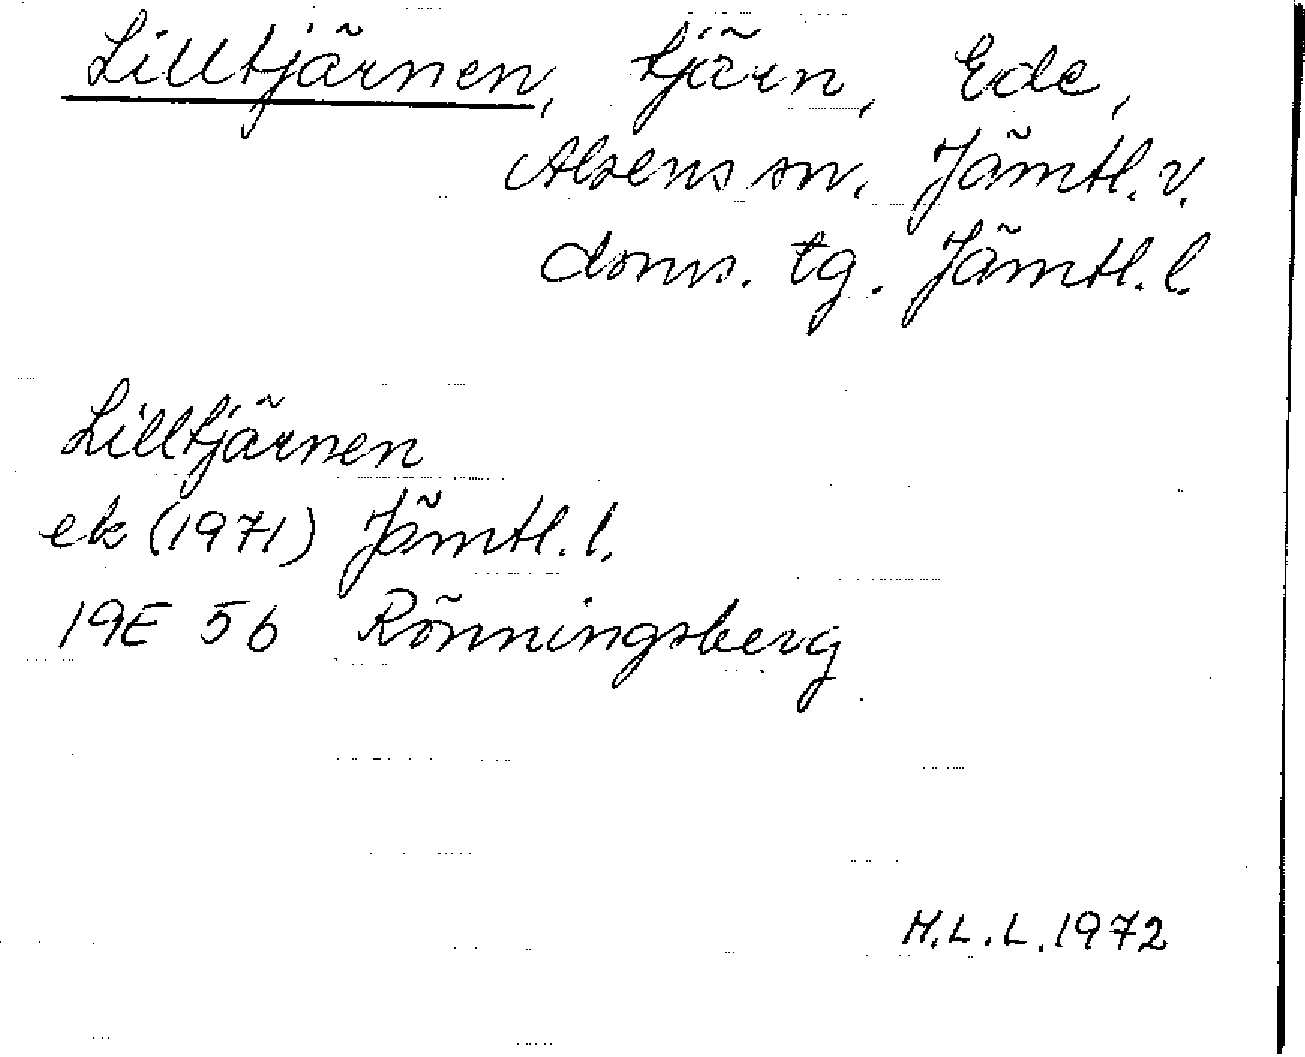 Lilltjärnen, tjärn, Ede,
Alsens sn. Jämtl. v.
doms. tg. Jämtl. l.
Lilltjärnen
ek (1971) Jämtl. l.
19E 5b Rönningsberg
H.L.L. 1972